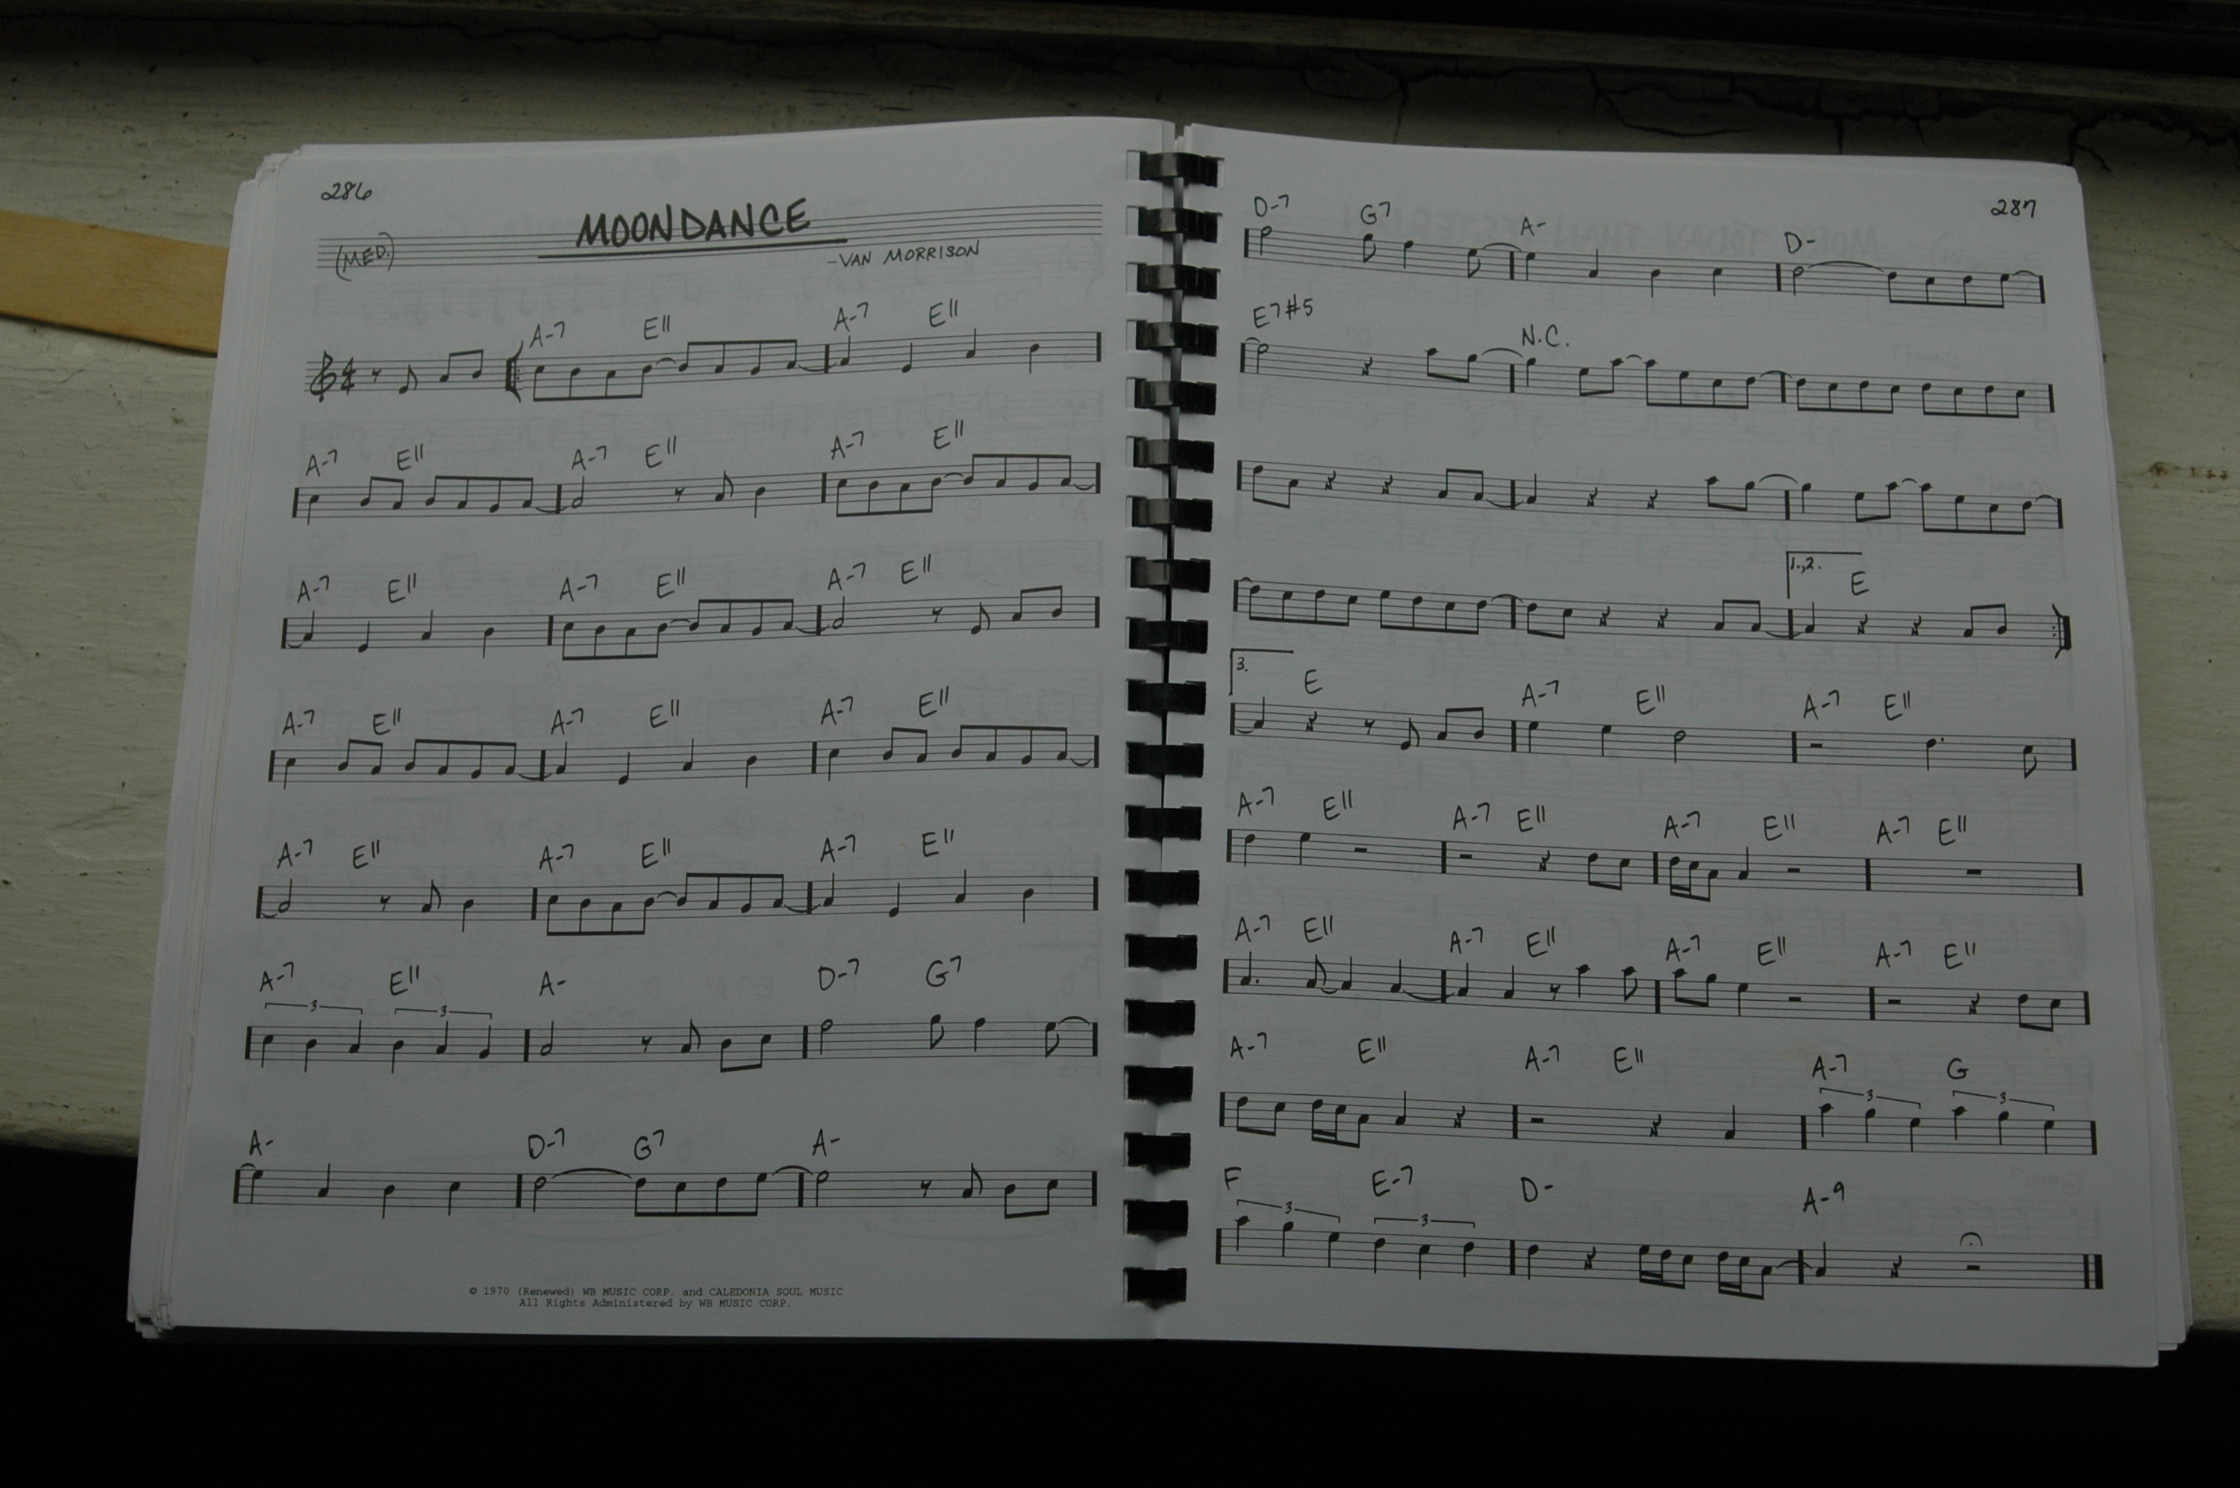 286
MOONDANCE
(MED.)
-VAN MORRISON
A-7 E11 A-7 E11
A-7 E11 A-7 E11 A-7 E11
A-7 E11 A-7 E11 A-7 E11
A-7 E11 A-7 E11 A-7 E11
A-7 E11 A-7 E11 A-7 E11
A-7 E11 A- D-7 G7
3 3
A- D-7 G7 A-
© 1970 (Renewed) WB MUSIC CORP. and CALEDONIA SOUL MUSIC
All Rights Administered by WB MUSIC CORP.
287
D-7 G7 A- D-
E7#5 N.C.
1,2. E
3. E A-7 E11 A-7 E11
A-7 E11 A-7 E11 A-7 E11 A-7 E11
A-7 E11 A-7 E11 A-7 E11 A-7 E11
A-7 E11 A-7 E11 A-7 G
3 3
F E-7 D- A-9
3 3